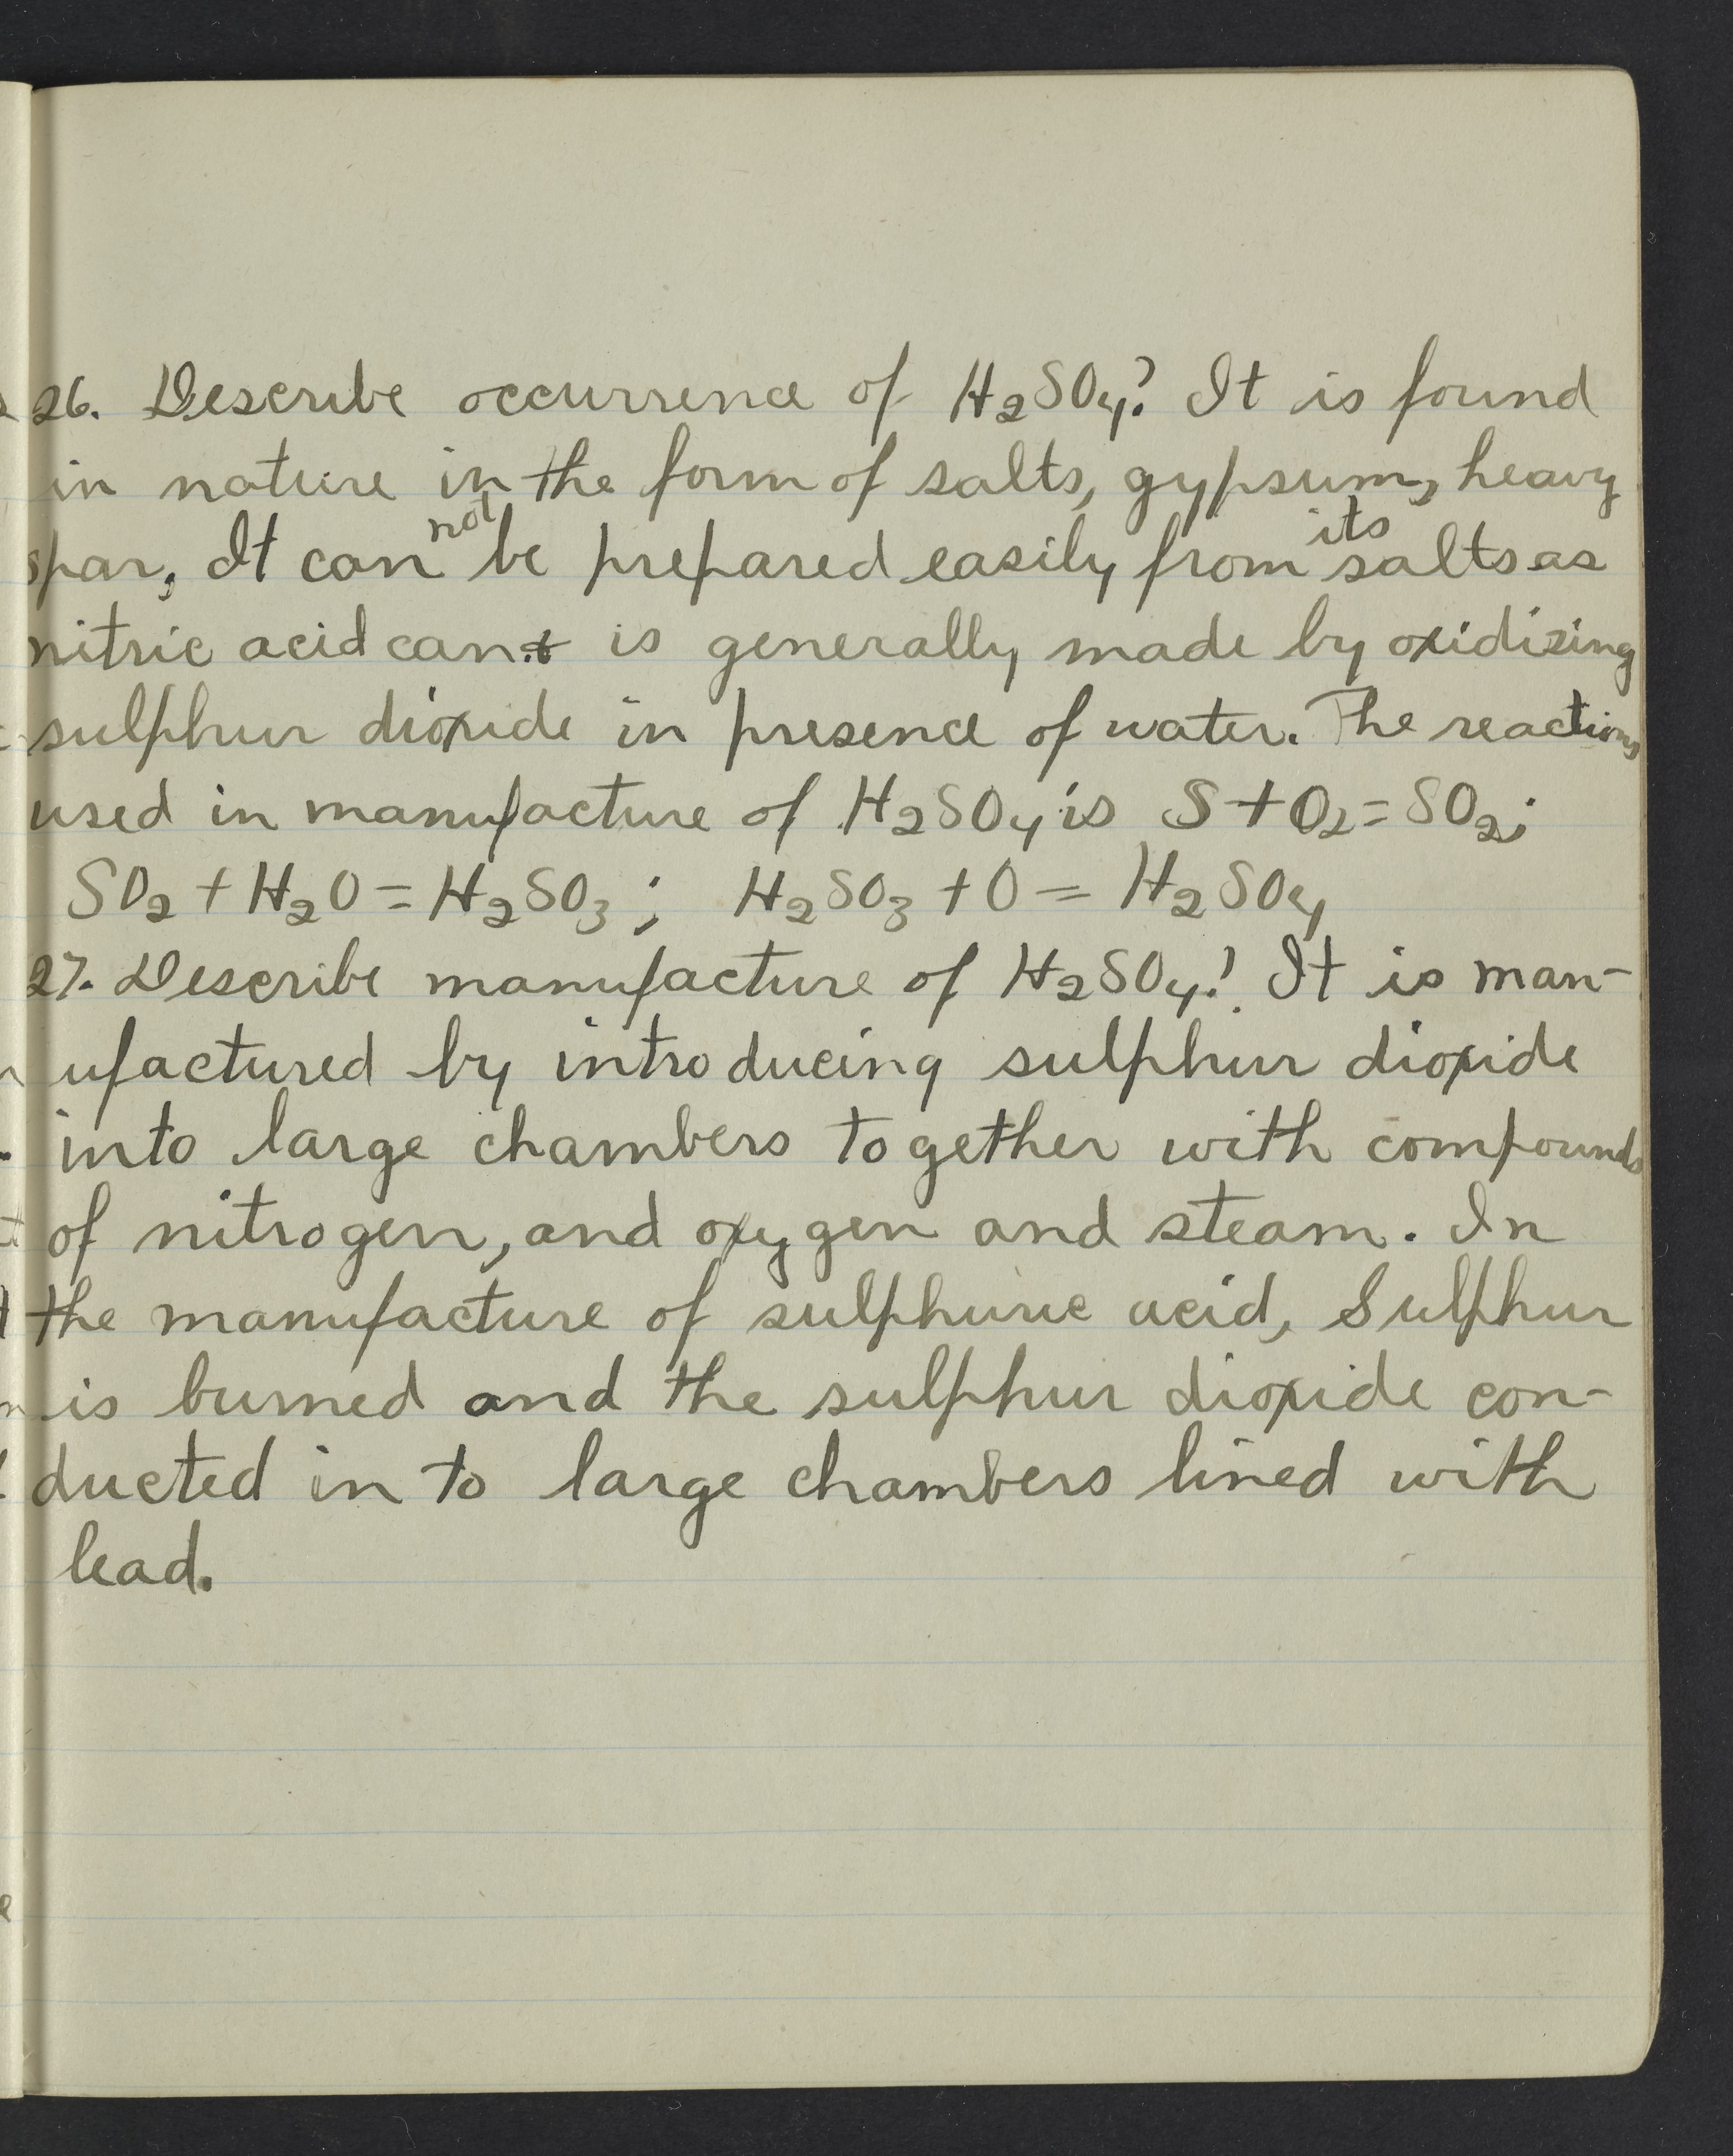 26. Describe occurrence of H₂SO₄? It is found
in nature in the form of salts, gypsum, heavy
spar, It can not be prepared easily from its salts as
nitric acid can & is generally made by oxidizing
sulphur dioxide in presence of water. The reactions
used in manufacture of H₂SO₄ is S + O₂ = SO₂;
SO₂ + H₂O = H₂SO₃; H₂SO₃ + O = H₂SO₄
27. Describe manufacture of H₂SO₄? It is man-
ufactured by introducing sulphur dioxide
into large chambers together with compounds
of nitrogen, and oxygen and steam. In
the manufacture of sulphuric acid, Sulphur
is burned and the sulphur dioxide con-
ducted in to large chambers lined with
lead.